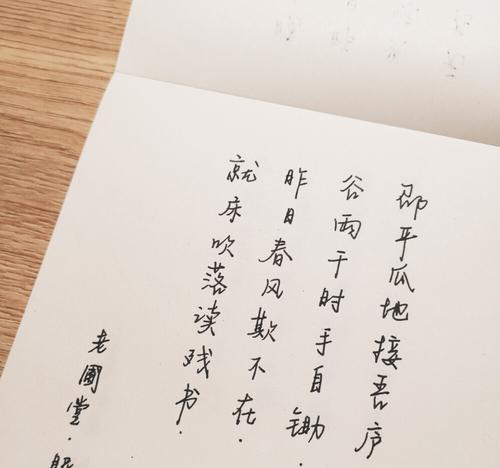 邵平瓜地接吾庐
谷雨干时手自锄.
昨日春风欺不在.
就床吹落读残书.
老圃堂.